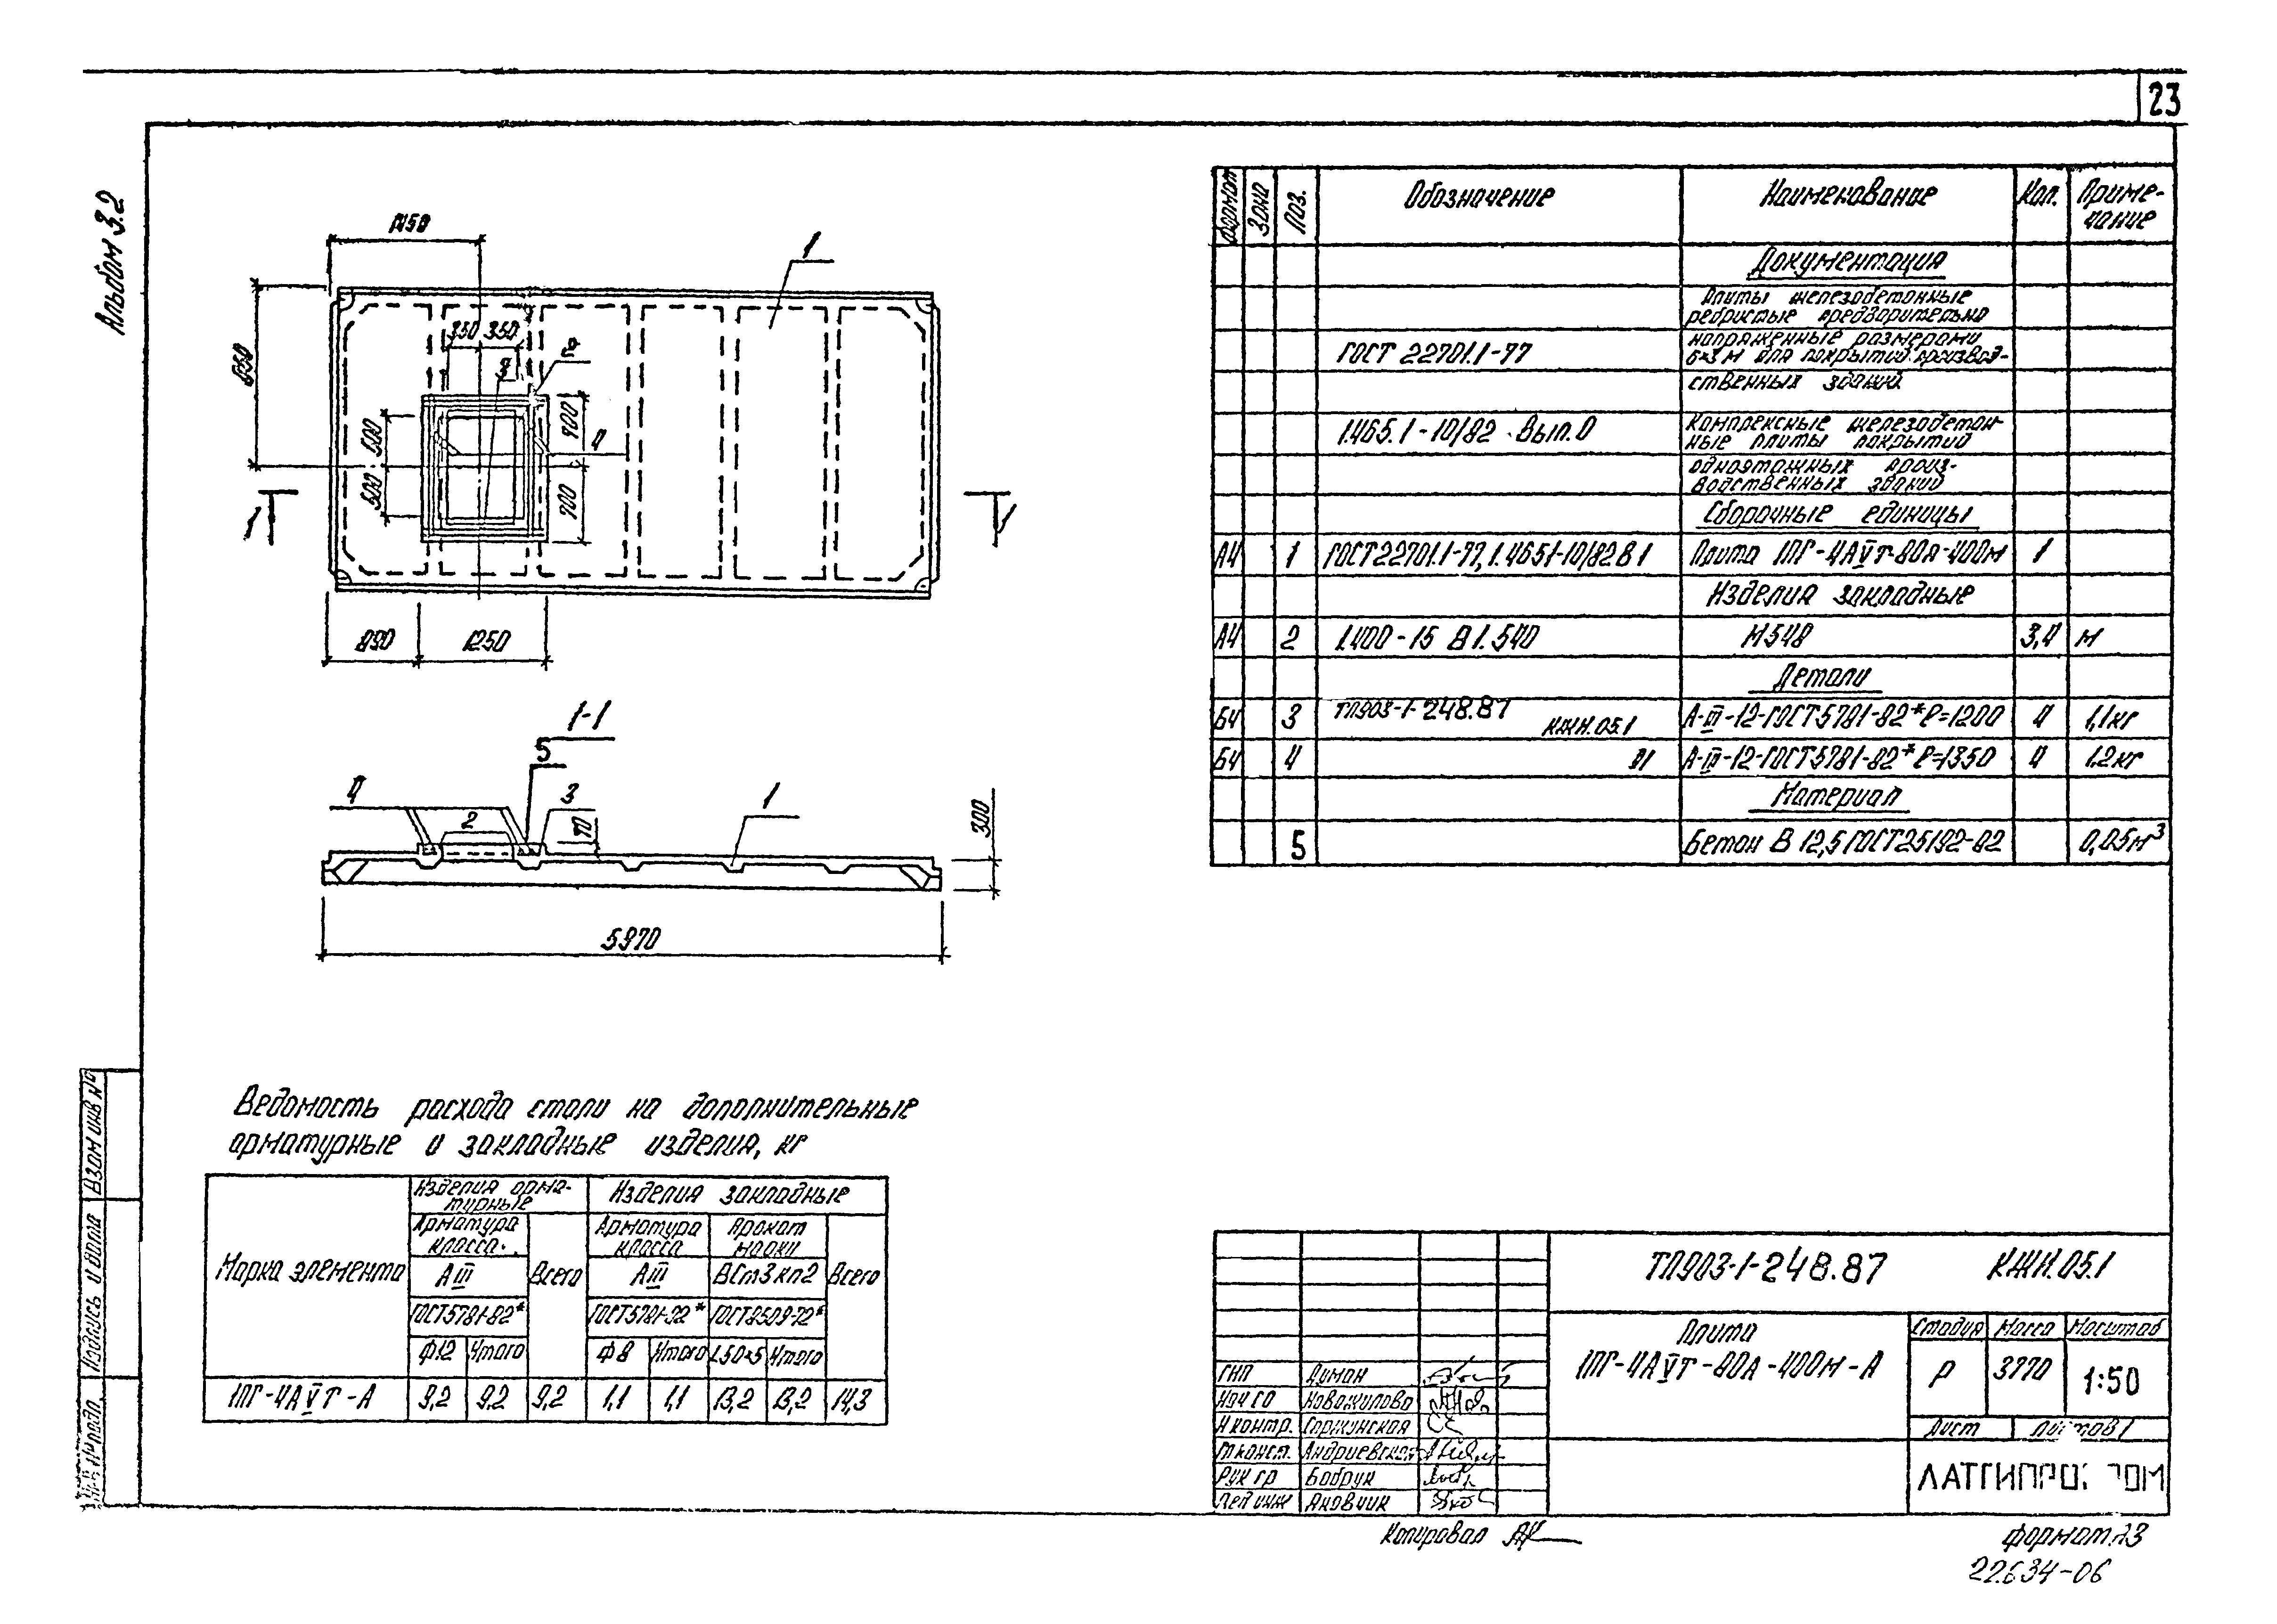 23
Альбом 3.2
1450
1
350 350
2
3
500
500
700
700
4
1
1
890
1250
1-1
5
4
3
2
1
300
5970
Формат
Зона
Поз.
Обозначение
Наименование
Кол.
Приме-
чание
Документация
Плиты железобетонные
ребристые предварительно
ГОСТ 22701.1-77
напряженные размерами
6×3 м для покрытий производ-
ственных зданий
1.465.1-10/82 Вып.0
Комплексные железобетон-
ные плиты покрытий
одноэтажных произ-
водственных зданий
Сборочные единицы
А4 1 ГОСТ22701.1-77, 1.465.1-10/82 В1 Плита 1ПГ-4АⅤТ-80А-400м 1
Изделия закладные
А4 2 1.400-15 В1.540 М548 3,4 м
Детали
БЧ 3 ТП903-1-248.87 КЖИ.05.1 А-Ⅲ-12-ГОСТ5781-82* ℓ=1200 4 1,1кг
БЧ 4 01 А-Ⅲ-12-ГОСТ5781-82* ℓ=1350 4 1.2кг
Материал
5 Бетон В 12,5 ГОСТ25192-82 0,05м³
Ведомость расхода стали на дополнительные
арматурные и закладные изделия, кг
Марка элемента
Изделия арма-
турные
Изделия закладные
Арматура
класса
Всего
Арматура
класса
Прокат
марки
Всего
АⅢ
АⅢ
ВСт3кп2
ГОСТ5781-82*
ГОСТ5781-82*
ГОСТ8509-72*
Ф12 Итого Ф8 Итого L50×5 Итого
1ПГ-4АⅤТ-А 9,2 9.2 9,2 1,1 1,1 13,2 13,2 14,3
ТП903-1-248.87 КЖИ.05.1
Плита
1ПГ-4АⅤТ-80А-400м-А
Стадия Масса Масштаб
Р 3770 1:50
Лист Листов 1
ГИП Думан
Нач со Новожилова
Н контр. Горжунская
Гл конст. Андриевский
Рук гр Бобрук
Вед инж Яновчик
Взам инв №
Подпись и дата
Инв № подл.
Копировал
формат А3
22634-06